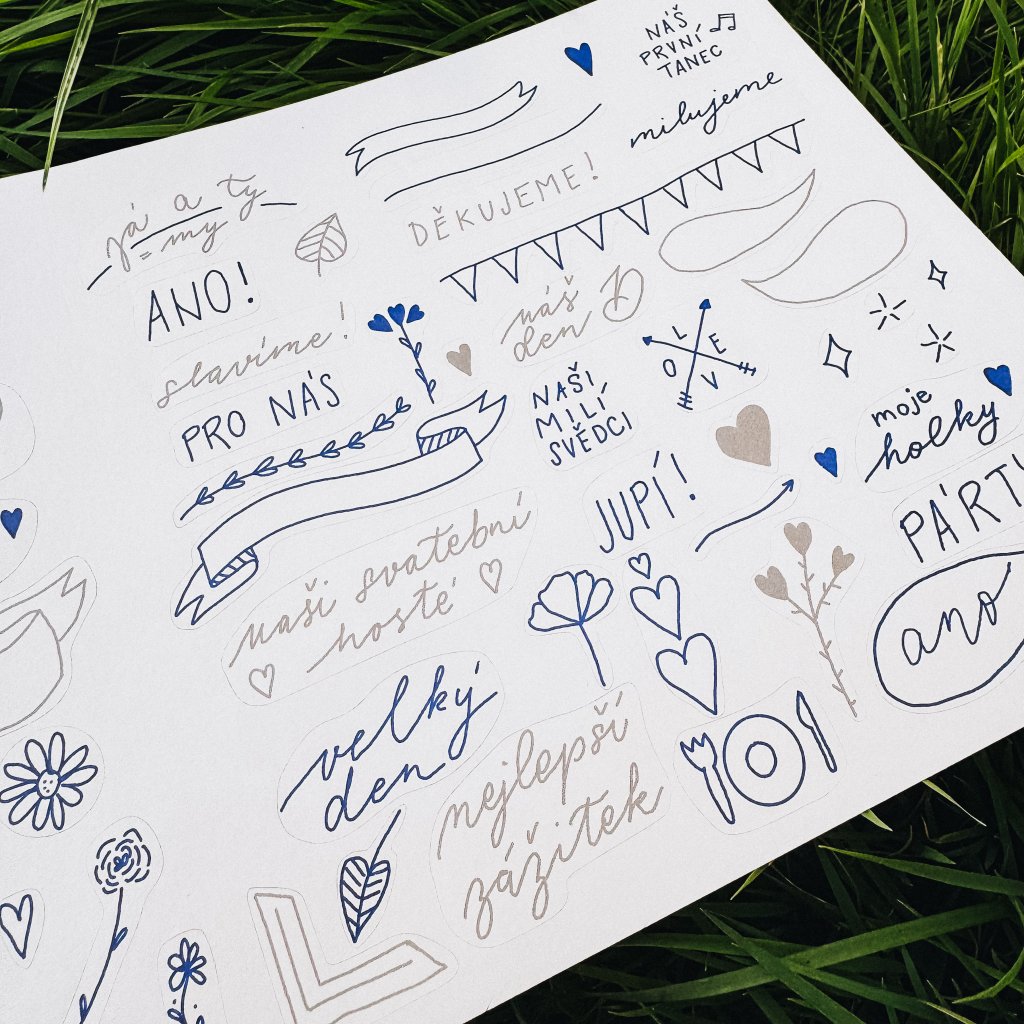 NÁŠ
PRVNÍ
TANEC
milujeme
já a ty
= my
DĚKUJEME!
ANO!
náš
den D
slavíme!
L
E
O
V
PRO NÁS
NAŠI
MILÍ
SVĚDCI
moje
holky
JUPÍ!
PÁRTY
naši svatební
hosté
ano
velký
den
nejlepší
zážitek